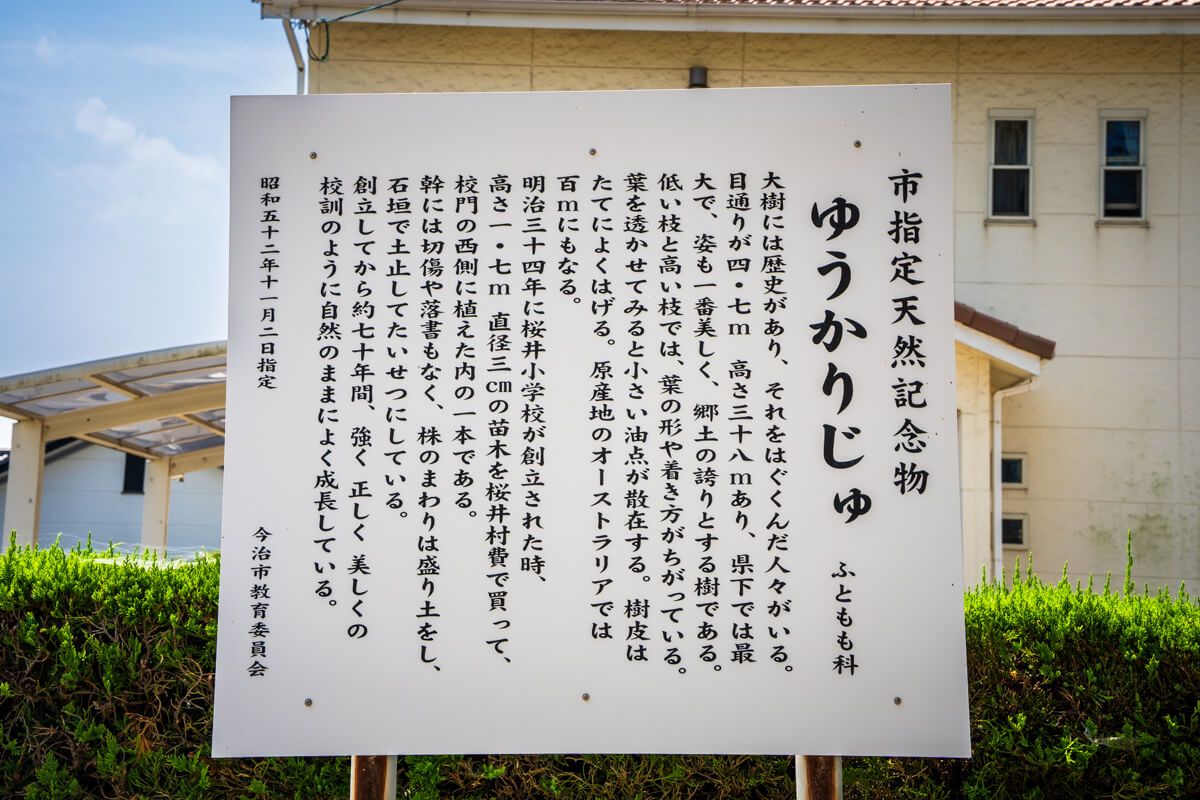 市指定天然記念物
ゆうかりじゅ ふともも科
大樹には歴史があり、それをはぐくんだ人々がいる。
目通りが四・七m 高さ三十八mあり、県下では最
大で、姿も一番美しく、郷土の誇りとする樹である。
低い枝と高い枝では、葉の形や着き方がちがっている。
葉を透かせてみると小さい油点が散在する。樹皮は
たてによくはげる。原産地のオーストラリアでは
百mにもなる。
明治三十四年に桜井小学校が創立された時、
高さ一・七m 直径三㎝の苗木を桜井村費で買って、
校門の西側に植えた内の一本である。
幹には切傷や落書もなく、株のまわりは盛り土をし、
石垣で土止してたいせつにしている。
創立してから約七十年間、強く 正しく 美しくの
校訓のように自然のままによく成長している。
昭和五十二年十一月二日指定
今治市教育委員会